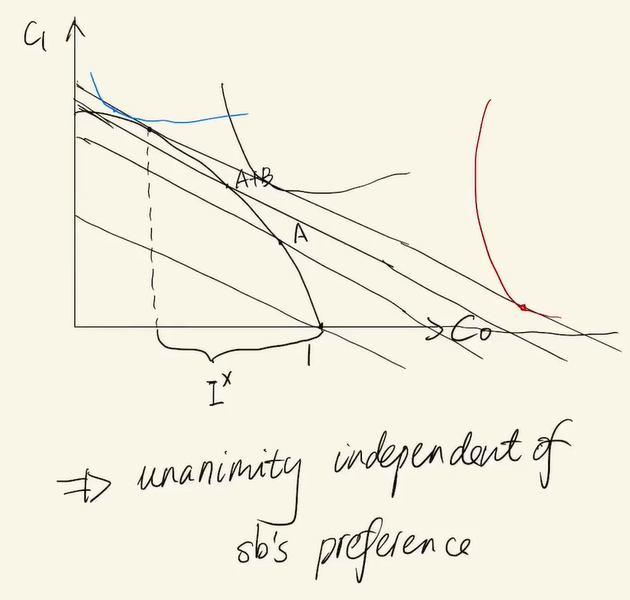 C₁
A+B
A
C₀
1
I*
⇒ unanimity independent of
sb's preference